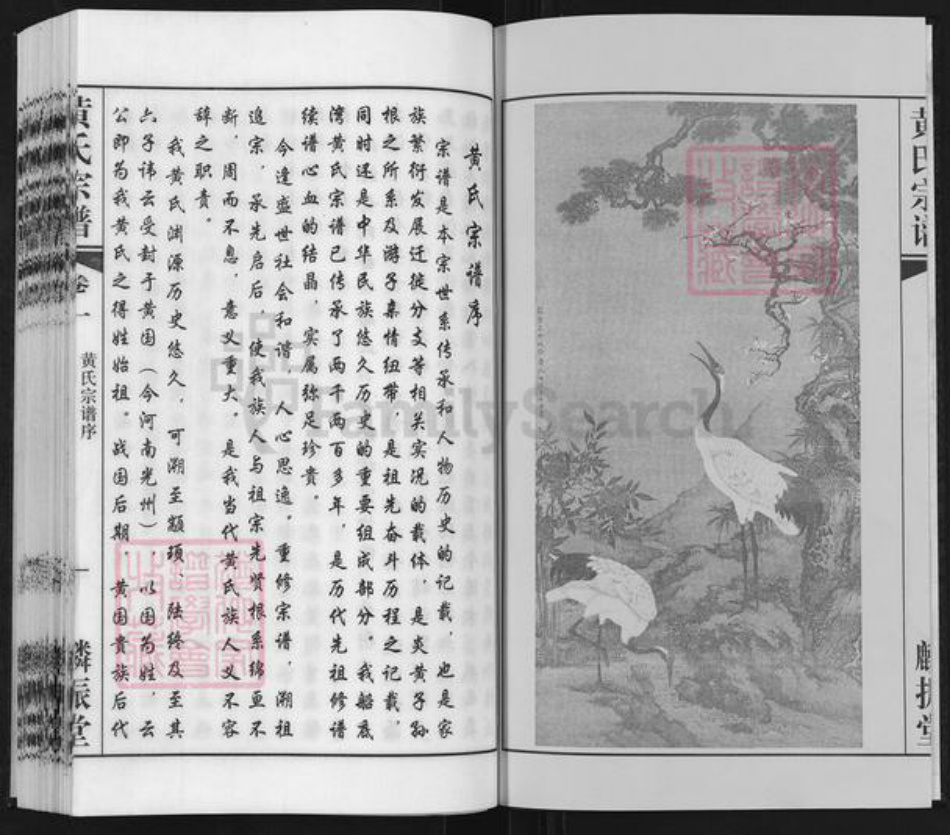 黄氏宗谱序
宗谱是本宗世系传承和人物历史的记载，也是家
族繁衍发展迁徙分支等相关实况的载体，是炎黄子孙
根之所系及游子亲情纽带，是祖先奋斗历程之记载，
同时还是中华民族悠久历史的重要组成部分。我船底
湾黄氏宗谱已传承了两千两百多年，是历代先祖修谱
续谱心血的结晶，实属弥足珍贵。
今逢盛世社会和谐，人心思逸，重修宗谱，溯祖
追宗，承先启后，使我族人与祖宗先贤根系绵亘不
断，周而不息，意义重大，是我当代黄氏族人义不容
辞之职责。
我黄氏渊源历史悠久，可溯至颛顼、陆终及至其
六子讳云受封于黄国（今河南光州），以国为姓，云
公即为我黄氏之得姓始祖。战国后期，黄国贵族后代
黄氏宗谱
卷一
黄氏宗谱序
一
麟振堂
黄氏宗谱
麟振堂
FamilySearch